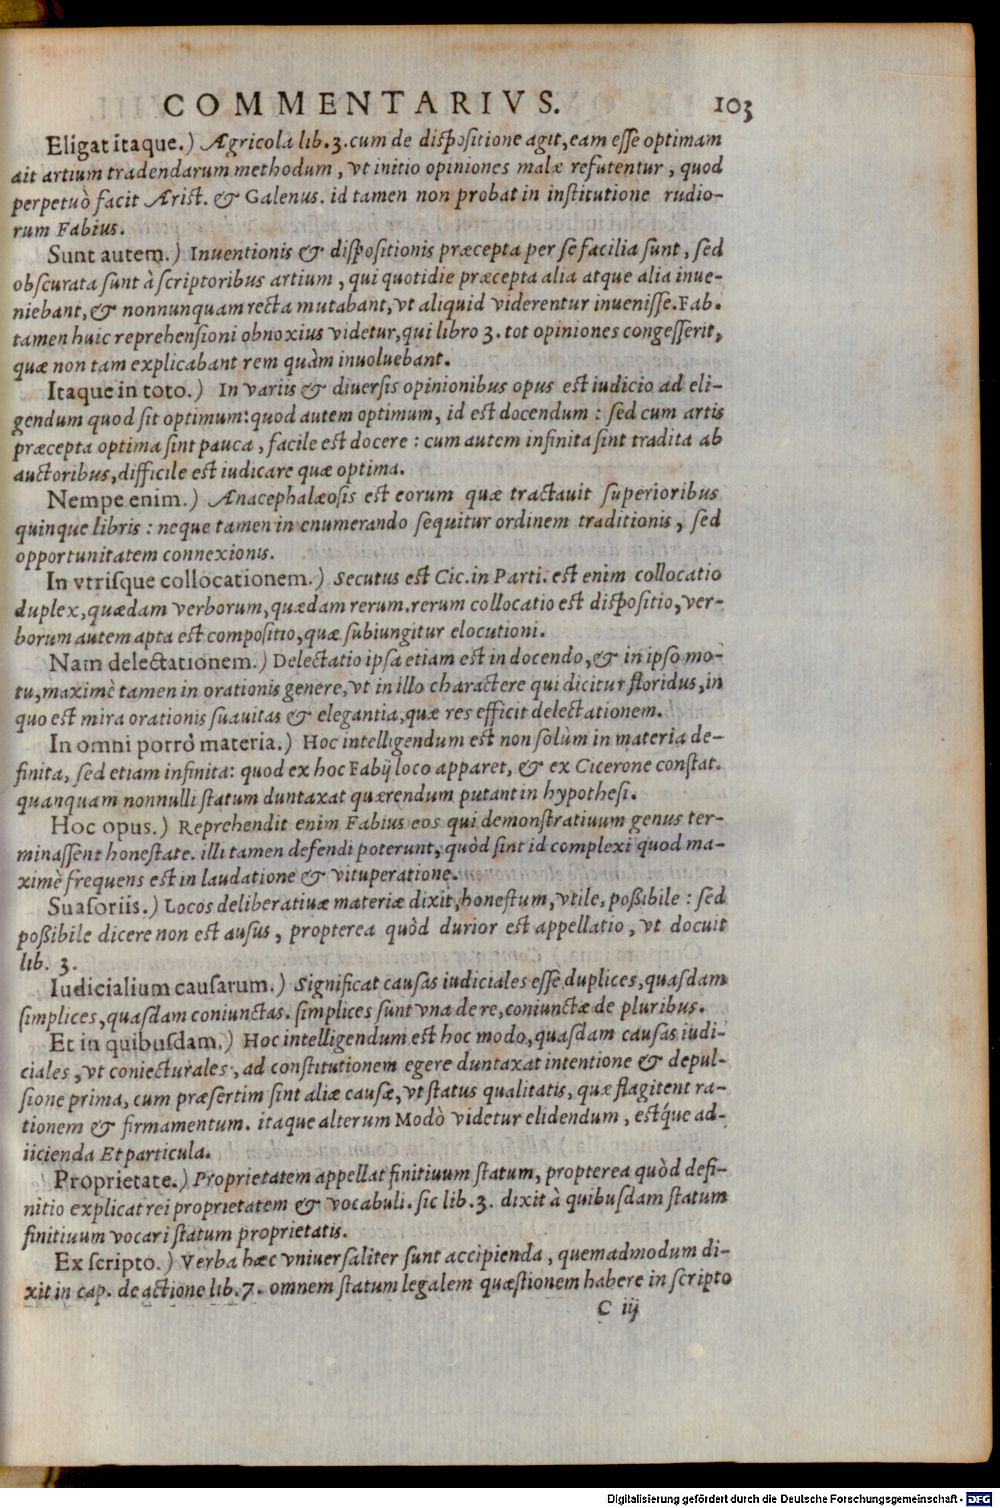 COMMENTARIVS. 103
Eligat itaque.) Agricola lib. 3. cum de dispositione agit, eam esse optimam
ait artium tradendarum methodum, vt initio opiniones malæ refutentur, quod
perpetuò facit Arist. & Galenus. id tamen non probat in institutione rudio-
rum Fabius.
Sunt autem.) Inuentionis & dispositionis præcepta per se facilia sunt, sed
obscurata sunt à scriptoribus artium, qui quotidie præcepta alia atque alia inue-
niebant, & nonnunquam recta mutabant, vt aliquid viderentur inuenisse. Fab.
tamen huic reprehensioni obnoxius videtur, qui libro 3. tot opiniones congesserit,
quæ non tam explicabant rem quàm inuoluebant.
Itaque in toto.) In variis & diuersis opinionibus opus est iudicio ad eli-
gendum quod sit optimum: quod autem optimum, id est docendum: sed cum artis
præcepta optima sint pauca, facile est docere: cum autem infinita sint tradita ab
auctoribus, difficile est iudicare quæ optima.
Nempe enim.) Anacephalæosis est eorum quæ tractauit superioribus
quinque libris: neque tamen in enumerando sequitur ordinem traditionis, sed
opportunitatem connexionis.
In vtrisque collocationem.) Secutus est Cic. in Parti. est enim collocatio
duplex, quædam verborum, quædam rerum. rerum collocatio est dispositio, ver-
borum autem apta est compositio, quæ subiungitur elocutioni.
Nam delectationem.) Delectatio ipsa etiam est in docendo, & in ipso mo-
tu, maximè tamen in orationis genere, vt in illo charactere qui dicitur floridus, in
quo est mira orationis suauitas & elegantia, quæ res efficit delectationem.
In omni porrò materia.) Hoc intelligendum est non solùm in materia de-
finita, sed etiam infinita: quod ex hoc Fabij loco apparet, & ex Cicerone constat.
quanquam nonnulli statum duntaxat quærendum putant in hypothesi.
Hoc opus.) Reprehendit enim Fabius eos qui demonstratiuum genus ter-
minassent honestate. illi tamen defendi poterunt, quòd sint id complexi quod ma-
ximè frequens est in laudatione & vituperatione.
Suasoriis.) Locos deliberatiuæ materiæ dixit, honestum, vtile, possibile: sed
possibile dicere non est ausus, propterea quòd durior est appellatio, vt docuit
lib. 3.
Iudicialium causarum.) Significat causas iudiciales esse duplices, quasdam
simplices, quasdam coniunctas. simplices sunt vna de re, coniunctæ de pluribus.
Et in quibusdam.) Hoc intelligendum est hoc modo, quasdam causas iudi-
ciales, vt coniecturales, ad constitutionem egere duntaxat intentione & depul-
sione prima, cum præsertim sint aliæ causæ, vt status qualitatis, quæ flagitent ra-
tionem & firmamentum. itaque alterum Modò videtur elidendum, estq́ue ad-
iicienda Et particula.
Proprietate.) Proprietatem appellat finitiuum statum, propterea quòd defi-
nitio explicat rei proprietatem & vocabuli. sic lib. 3. dixit à quibusdam statum
finitiuum vocari statum proprietatis.
Ex scripto.) Verba hæc vniuersaliter sunt accipienda, quemadmodum di-
xit in cap. de actione lib. 7. omnem statum legalem quæstionem habere in scripto
C iij
Digitalisierung gefördert durch die Deutsche Forschungsgemeinschaft - DFG